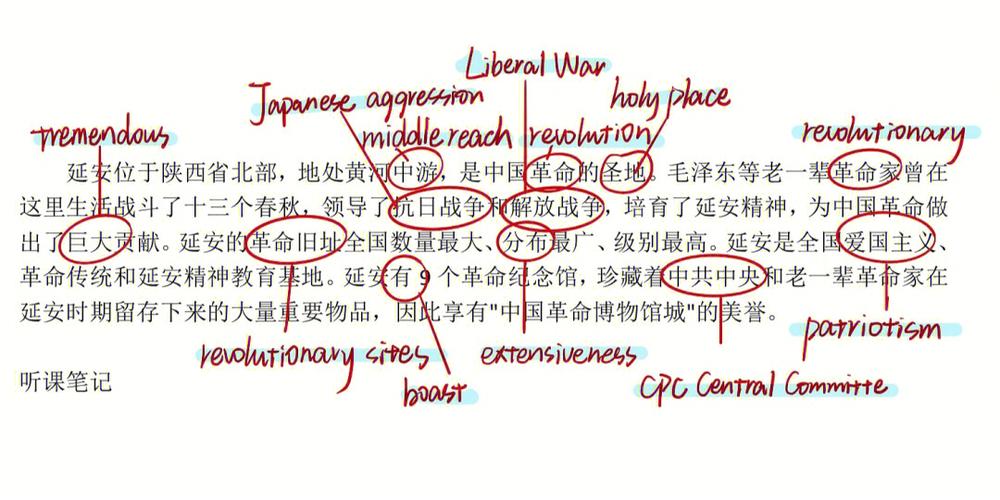 Liberal War
Japanese aggression
holy place
tremendous
middle reach
revolution
revolutionary
延安位于陕西省北部，地处黄河中游，是中国革命的圣地。毛泽东等老一辈革命家曾在
这里生活战斗了十三个春秋，领导了抗日战争和解放战争，培育了延安精神，为中国革命做
出了巨大贡献。延安的革命旧址全国数量最大、分布最广、级别最高。延安是全国爱国主义、
革命传统和延安精神教育基地。延安有 9 个革命纪念馆，珍藏着中共中央和老一辈革命家在
延安时期留存下来的大量重要物品，因此享有"中国革命博物馆城"的美誉。
patriotism
revolutionary sites
extensiveness
听课笔记
boast
CPC Central Committe